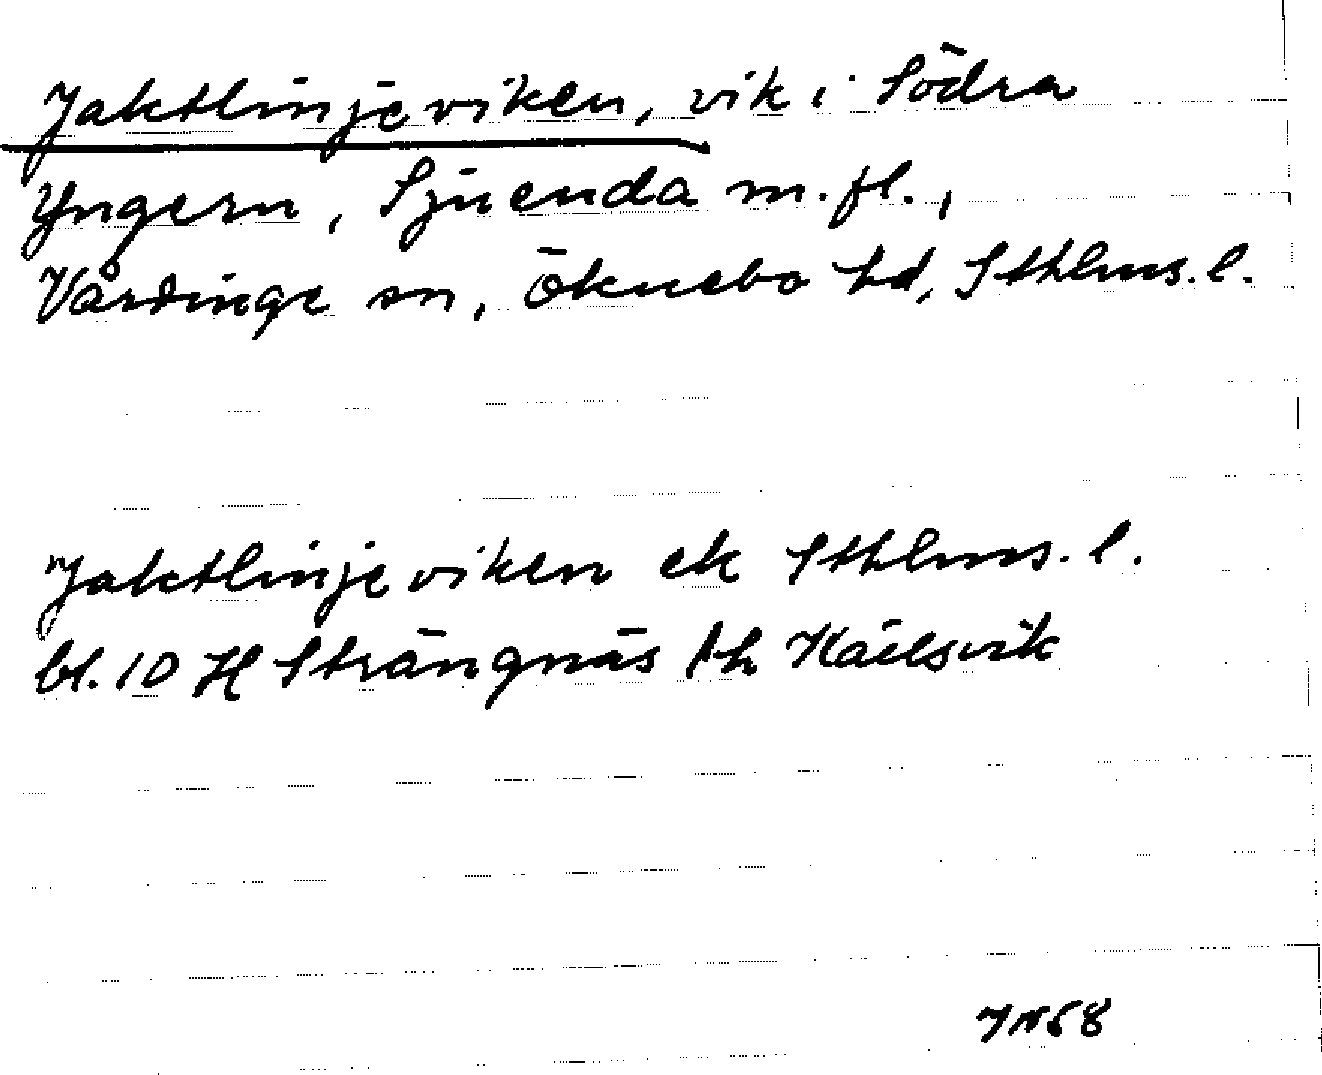 Jaktlinjeviken, vik i Södra
Yngern, Sjuenda m.fl.,
Vårdinge sn, Öknebo hd, Sthlms.l.
Jaktlinjeviken ek Sthlms.l.
bl. 10 H Strängnäs